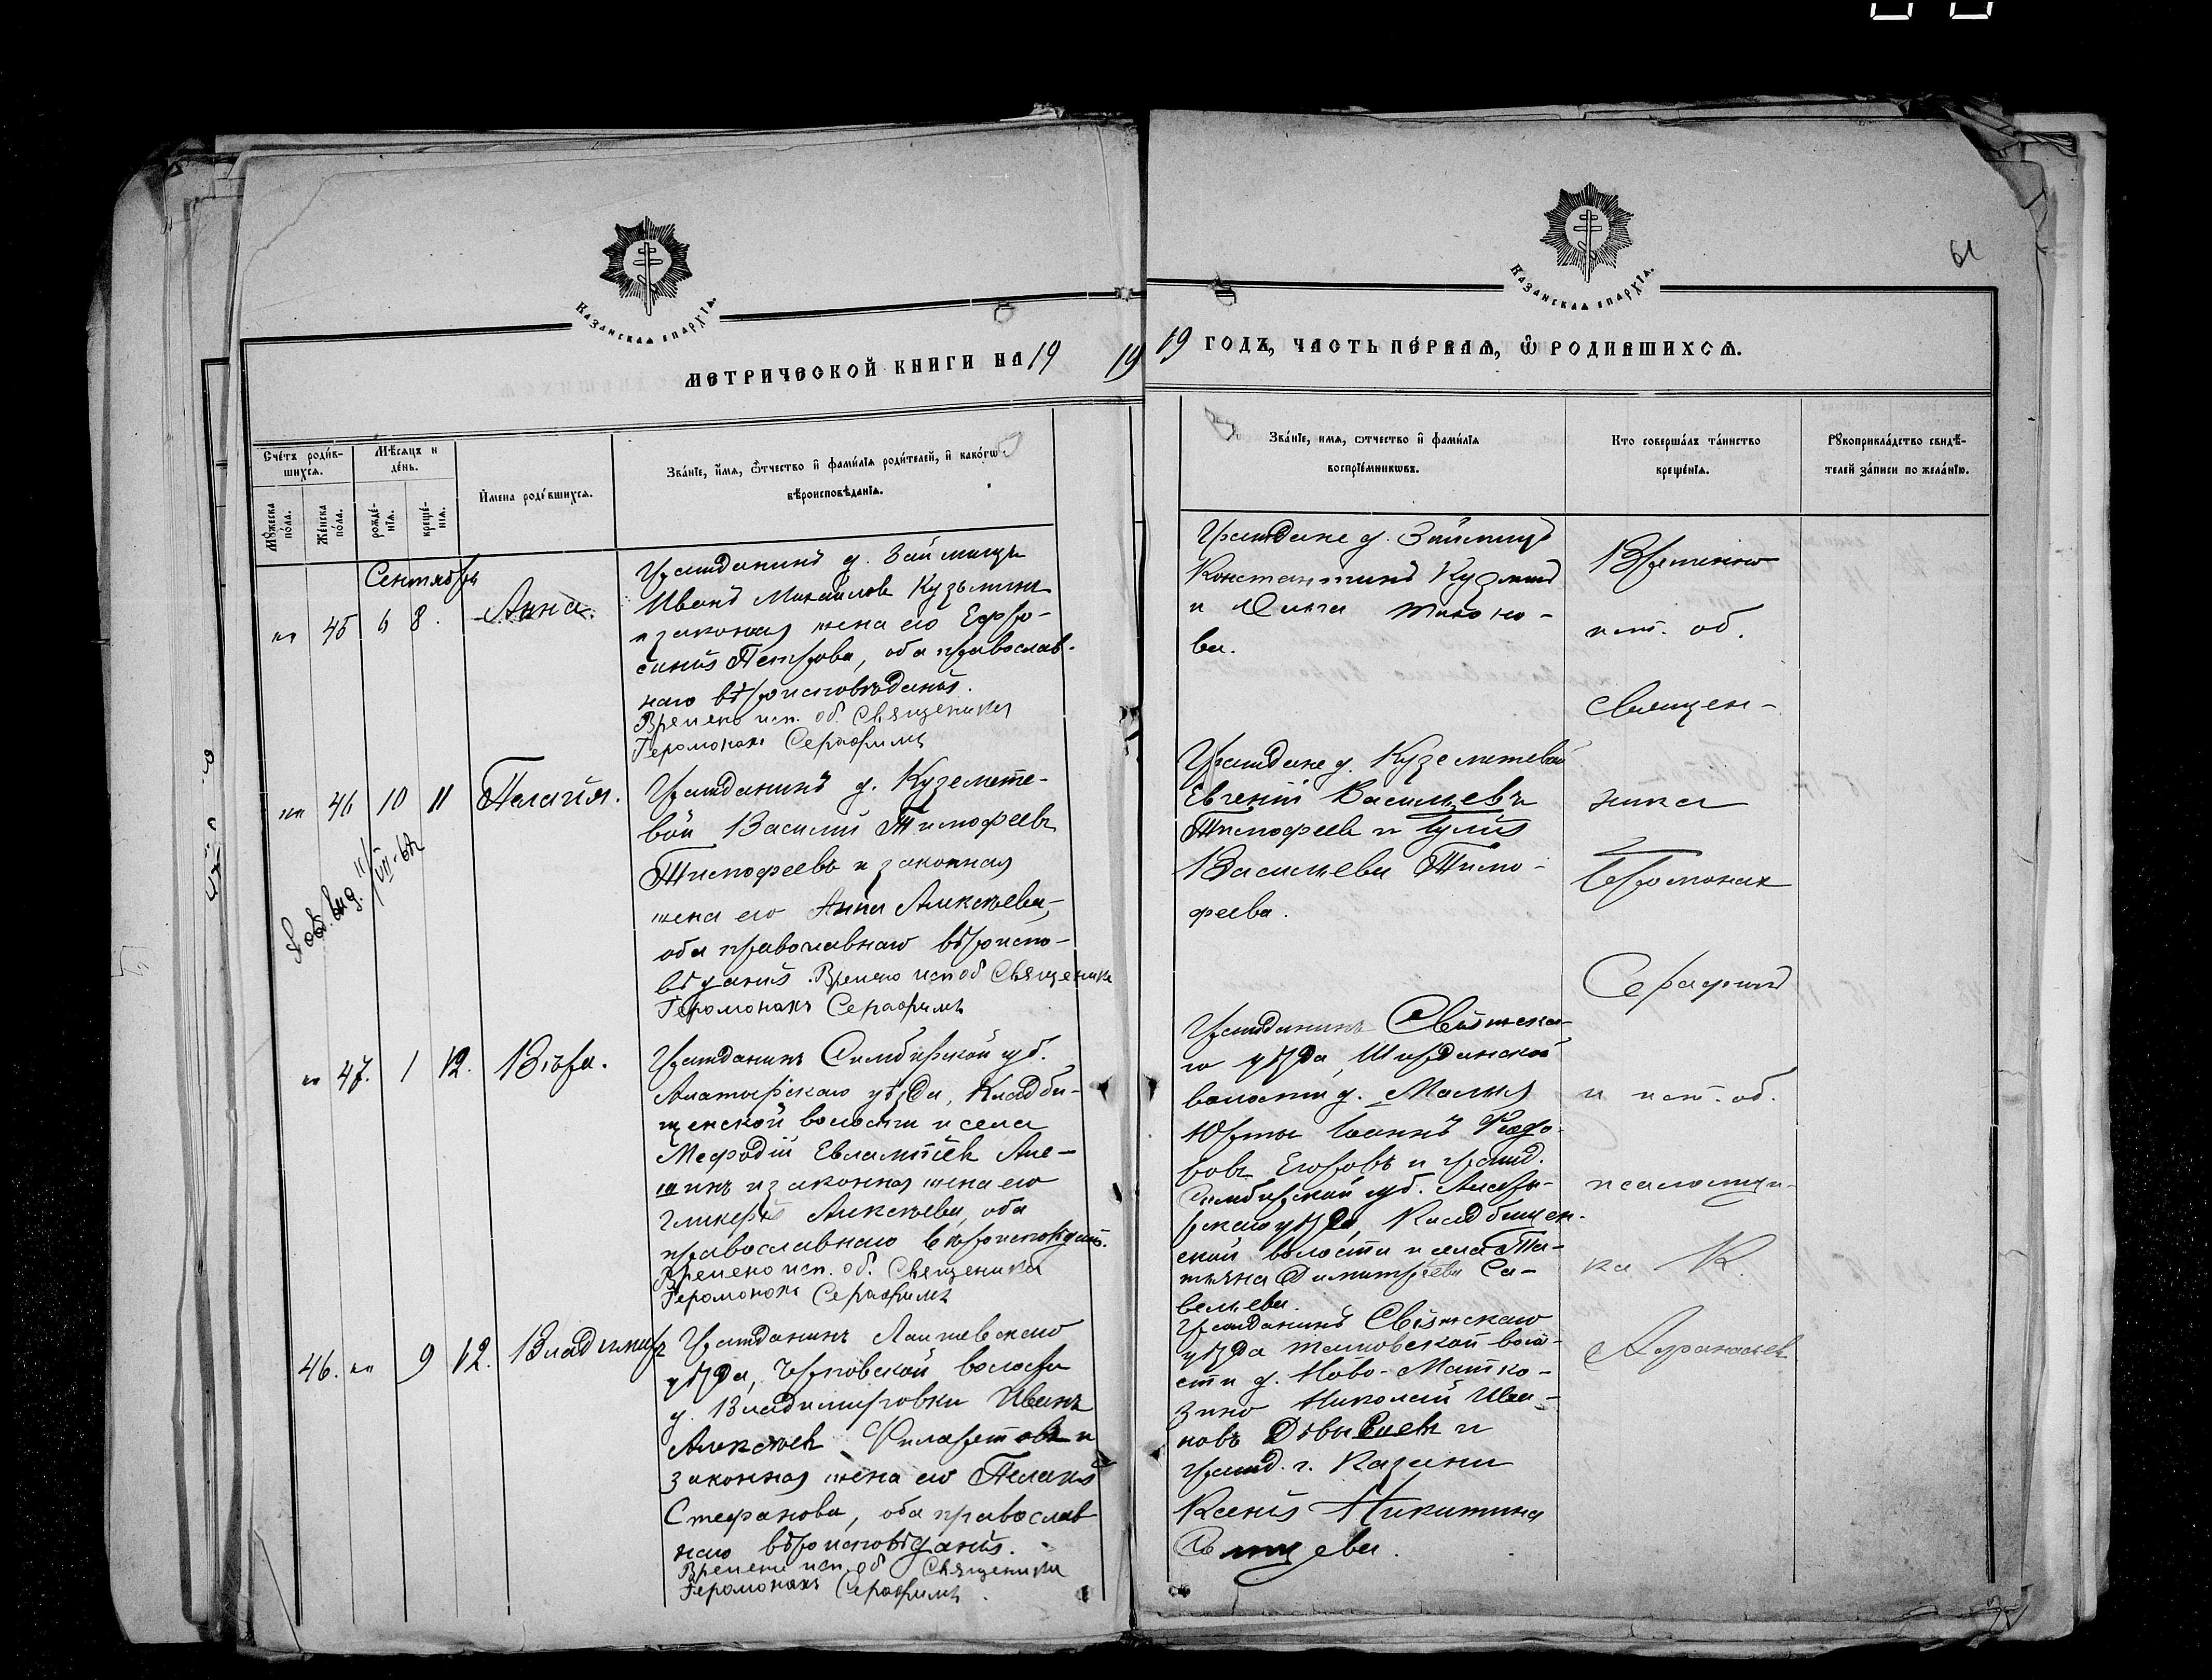 61
Казанская епархія.
Казанская епархія.
Метрической книги на 19 19
19 годъ, часть пе́рвая, ѽ родившихся.
Сче́тъ роди́в-
шихся.
Му́жеска
по́ла.
Же́нска
по́ла.
Мѣ́сяцъ и
де́нь.
рожде́-
нїя.
креще́-
нїя.
И҆мена роди́вшихся.
Зва́нїе, и҆́мя, ѻ҆́тчество и҆ фами́лїя роди́телей, и҆ како́гѡ
вѣроисповѣ́данїя.
Зва́нїе, имя, ѻтчество и҆ фами́лїя
воспрїе́мниковъ.
Кто соверша́лъ та́инство
креще́нїя.
Рꙋкоприкла́дство свидѣ́-
телей за́писи по жела́нїю.
Сентябрь
" 45 6 8. Анна.
Гражданинъ д. Займищъ
Иванъ Михайловъ Кузьминъ
и законная жена его Ефро-
синія Петрова, оба православ-
наго вѣроисповѣданія.
Времено исп. об. Священика
Іеромонахъ Серафимъ
Граждане д. Займищъ
Константинъ Кузминъ
и Тихоно-
ва.
"" 46 10 11 Пелагія.
Гражданинъ д. Куземете-
вой Василій Тимофеевъ
Тимофеевъ и законная
жена его Анна Алексѣева,
оба православнаго вѣроиспо-
вѣданія. Времено исп об Священика
Іеромонахъ Серафимъ
Граждане д. Куземетевой
Евгеній Васильевъ
Тимофеевъ и Юлія
Васильева Тимо-
феева.
" 47. 1 12. Вѣра.
Гражданинъ Симбирской губ.
Алатырскаго уѣзда, Кладби-
щенской волости и села
Мефодій Евлампіевъ Але-
шинъ и законная жена его
Гликерія Алексѣева, оба
православнаго вѣроисповѣдан.
Времено исп. об. Священика
Іеромонахъ Серафимъ
Гражданинъ Свіяжска-
го уѣзда, Ширданской
волости д. Малыя
Юрты Іоаннъ Федо-
ровъ Егоровъ и гражд.
Симбирской губ. Алаты-
рскаго уѣзда, Кладбищен-
ской волости и села Та-
тьяна Димитріева Са-
вельева.
46. "" 9 12. Владимиръ
Гражданинъ Лаишевскаго
уѣзда, волости
д. Владимировки Иванъ
Алексѣевъ Филаретовъ и
законная жена его Пелагія
Стефанова, оба православ-
наго вѣроисповѣданія.
Времено исп. об Священика
Іеромонахъ Серафимъ
Гражданинъ Свіяжскаго
уѣзда воло-
сти д. Ново-
Николай Ива-
новъ и
гражд. г. Казани
Ксенія Никитина
Временно
исп. об.
священ-
ника
Іеромонах
Серафимъ
и исп. об.
псаломщи-
ка К.
Афанасьев